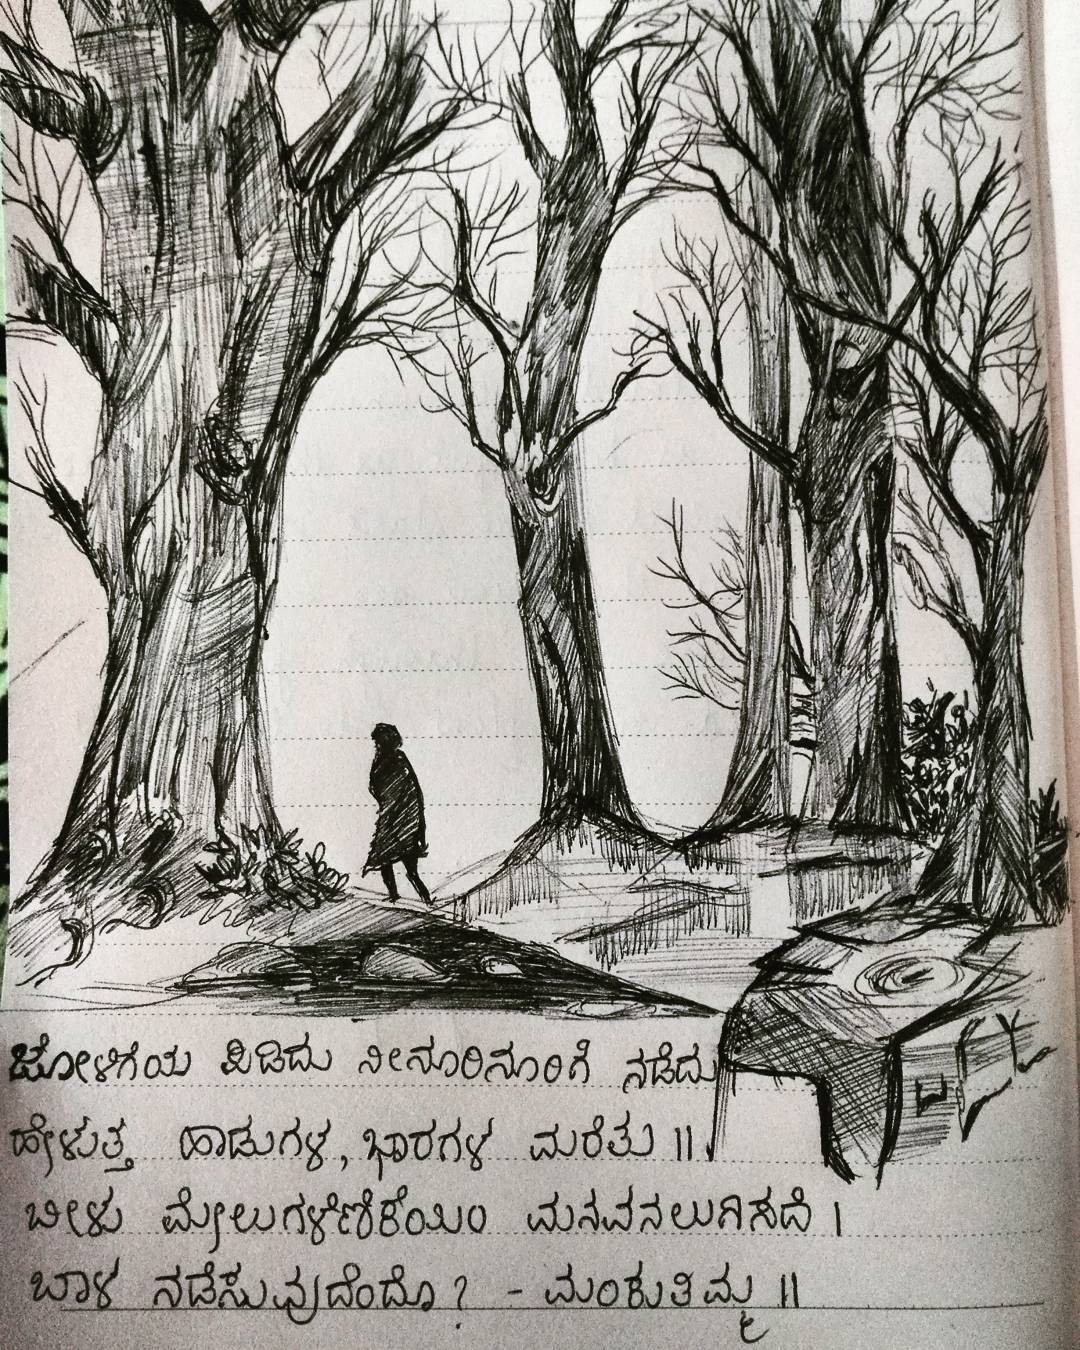 ಜೋಳಿಗೆಯ ಪಿಡಿದು ನೀನೂರಿನೂರಿಗೆ ನಡೆದು
ಹೇಳುತ್ತ ಹಾಡುಗಳ, ಭಾರಗಳ ಮರೆತು ||
ಬೀಳು ಮೇಲುಗಳೆಣಿಕೆಯಿಂ ಮನವನಲುಗಿಸದೆ |
ಬಾಳ ನಡೆಸುವುದೆಂದೊ? - ಮಂಕುತಿಮ್ಮ ||